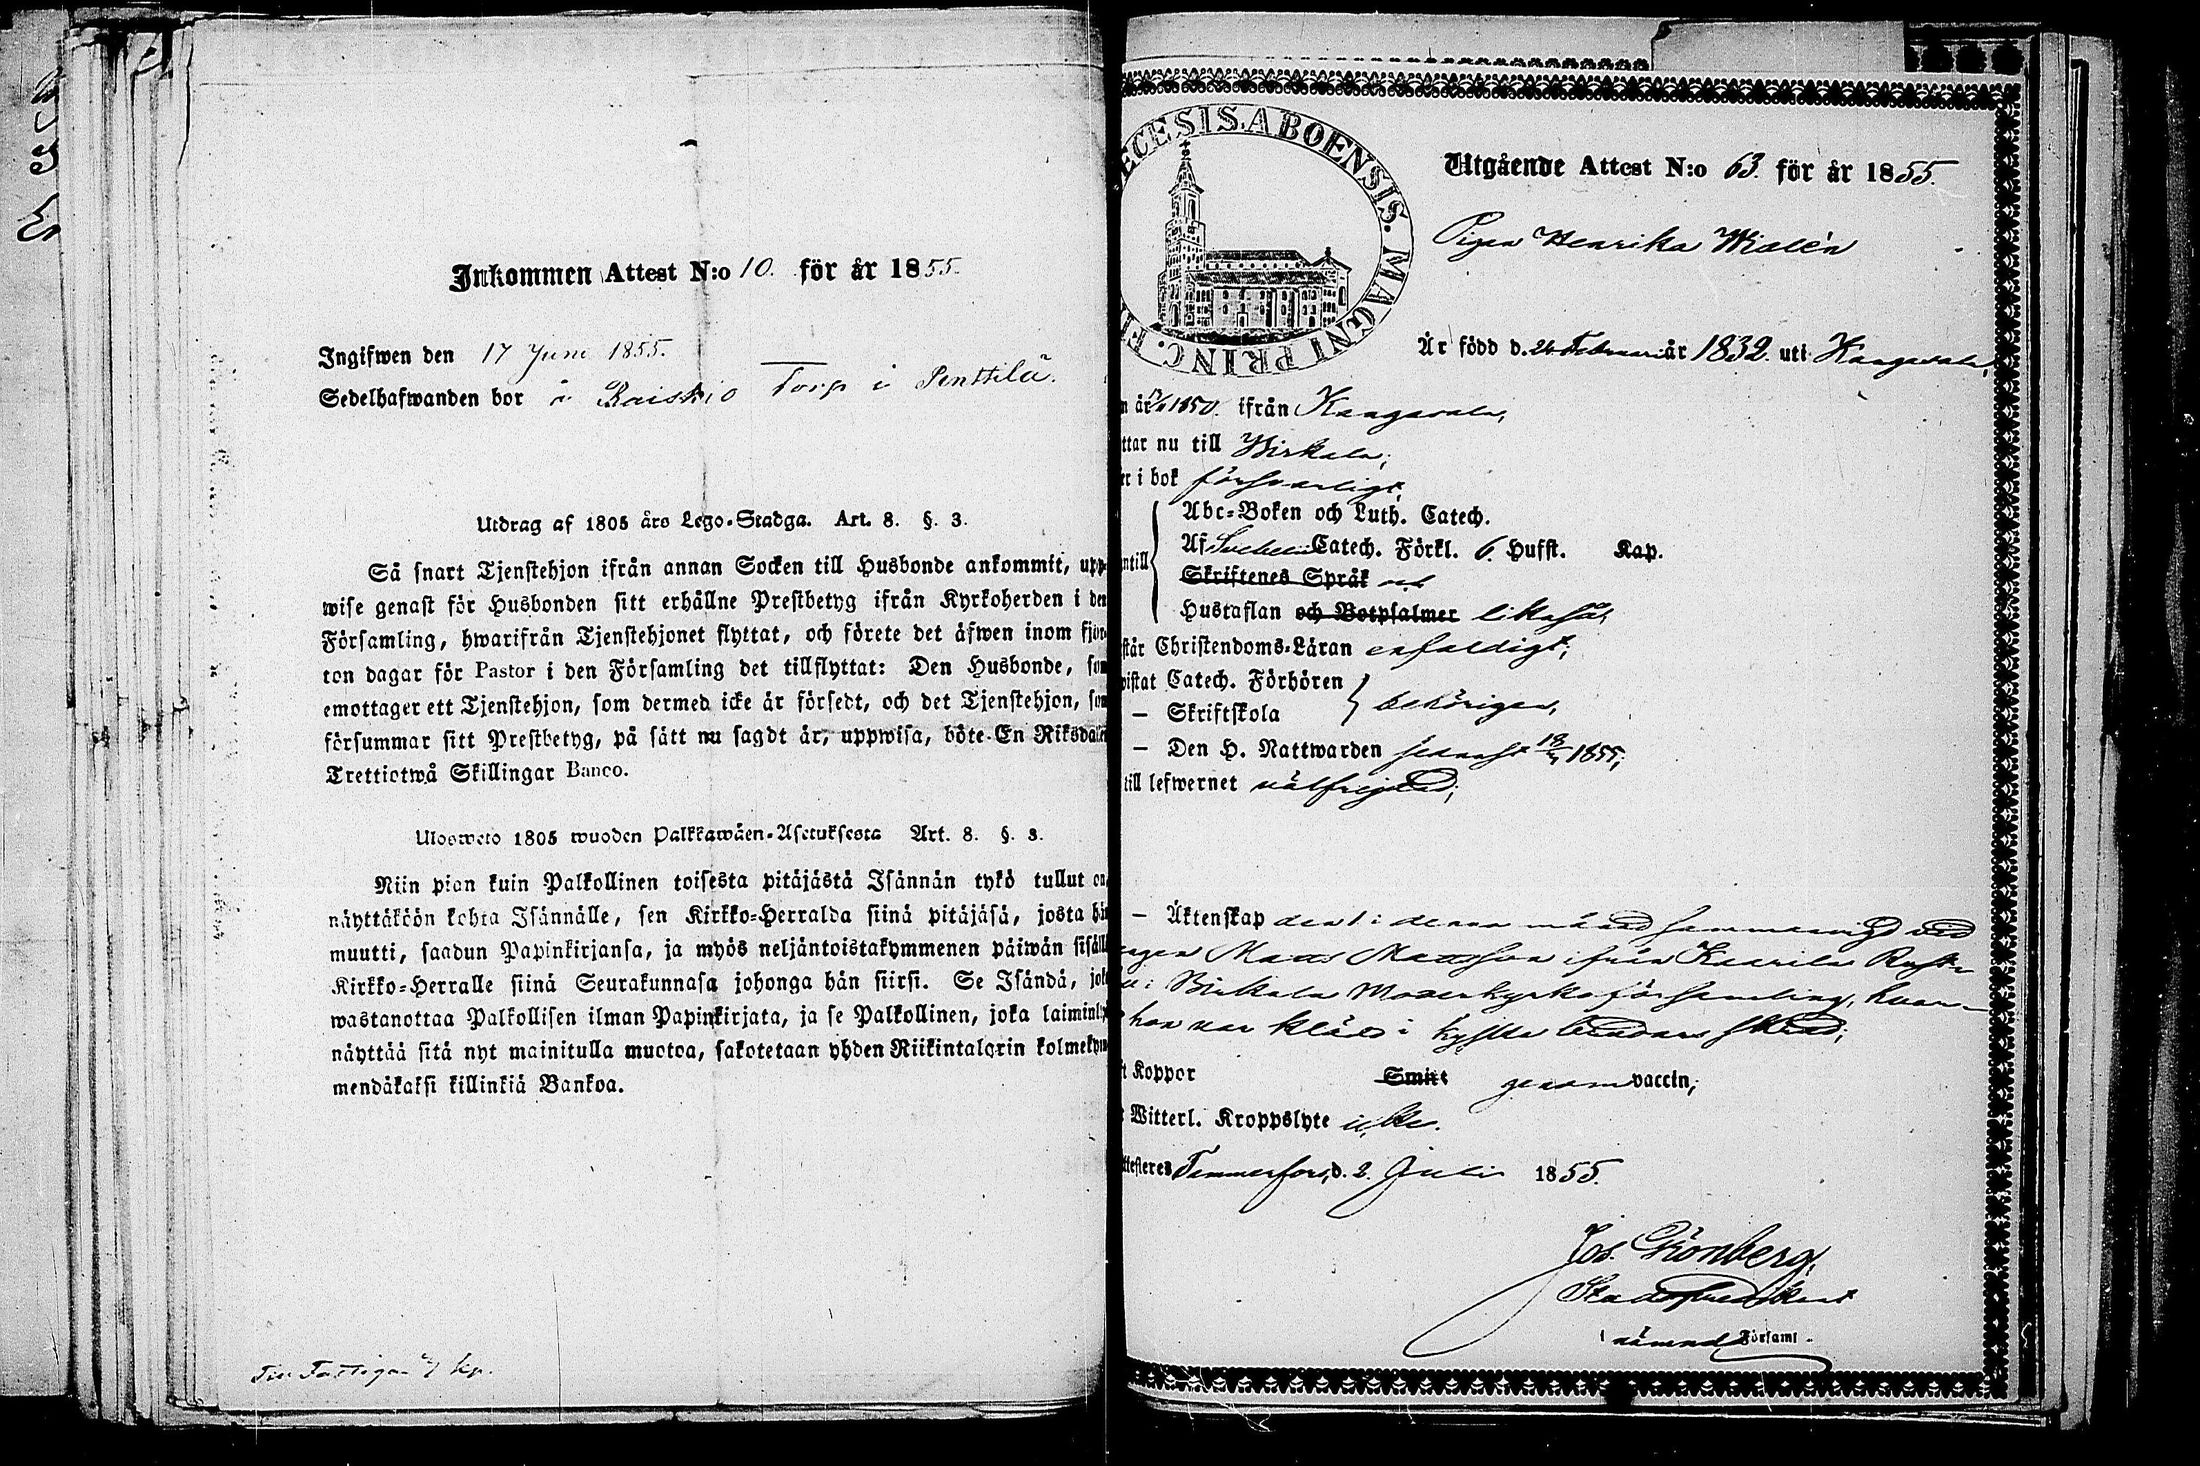 Inkommen Attest N:o 10. för år 1855.
Ingifwen den 17 Juni 1855.
Sedelhafwanden bor å Raiskio Torp i Penttilä.
Utdrag af 1805 års Lego-Stadga. Art. 8. §. 3.
Så snart Tjenstehjon ifrån annan Socken till Husbonde ankommit, upp-
wise genast för Husbonden sitt erhållne Prestbetyg ifrån Kyrkoherden i den
Församling, hwarifrån Tjenstehjonet flyttat, och förete det äfwen inom fjor-
ton dagar för Pastor i den Församling det tillflyttat: Den Husbonde, som
emottager ett Tjenstehjon, som dermed icke är försedt, och det Tjenstehjon, som
försummar sitt Prestbetyg, på sätt nu sagdt är, uppwisa, böte En Riksdaler
Trettiotwå Skillingar Banco.
Ulosweto 1805 wuoden Palkkawäen-Asetuksesta Art. 8. §. 3.
Niin pian kuin Palkollinen toisesta pitäjästä Isännän tykö tullut on,
näyttäköön kohta Isännälle, sen Kirkko-Herralda siinä pitäjäsä, josta hän
muutti, saadun Papinkirjansa, ja myös neljäntoistakymmenen päiwän sisällä
Kirkko-Herralle siinä Seurakunnasa johonga hän siirsi. Se Isändä, joka
wastanottaa Palkollisen ilman Papinkirjata, ja se Palkollinen, joka laiminly
näyttää sitä nyt mainitulla muotoa, sakotetaan yhden Riikintalarin kolmekym
mendäkaksi killinkiä Bankoa.
Till Fattiga kp.
ECESIS. ABOENSIS. MAGNI PRINC. F
Utgående Attest N:o 63. för år 1855.
Pigan Henrika Widlén
Är född d. 26 Februari år 1832. uti Kangasala,
n år 1850. ifrån Kangasala,
ttar nu till Birkala;
er i bok försvarligt,
Abc-Boken och Luth. Catech.
ntill Af Svebelii Catech. Förkl. 6. Hufst. Kap.
Skriftenes Språk
Hustaflan och Botpsalmer likaså,
står Christendoms-Läran enfaldigt;
wistat Catech. Förhören
— Skriftskola behörigen,
— Den H. Nattwarden senast 1855;
till lefwernet välfrejdad;
— Äktenskap
Matts Mattsson ifrån Kaarila Rust-
i Birkala Moderkyrkoförsamling, hvar-
hon var klädd i
t Koppor Smitt genom vaccin;
t Witterl. Kroppslyte icke.
ttesteres Tammerfors, d. 2. Juli 1855.
Jos. Grönberg,
Stadspredikant
i nämnde Församl.